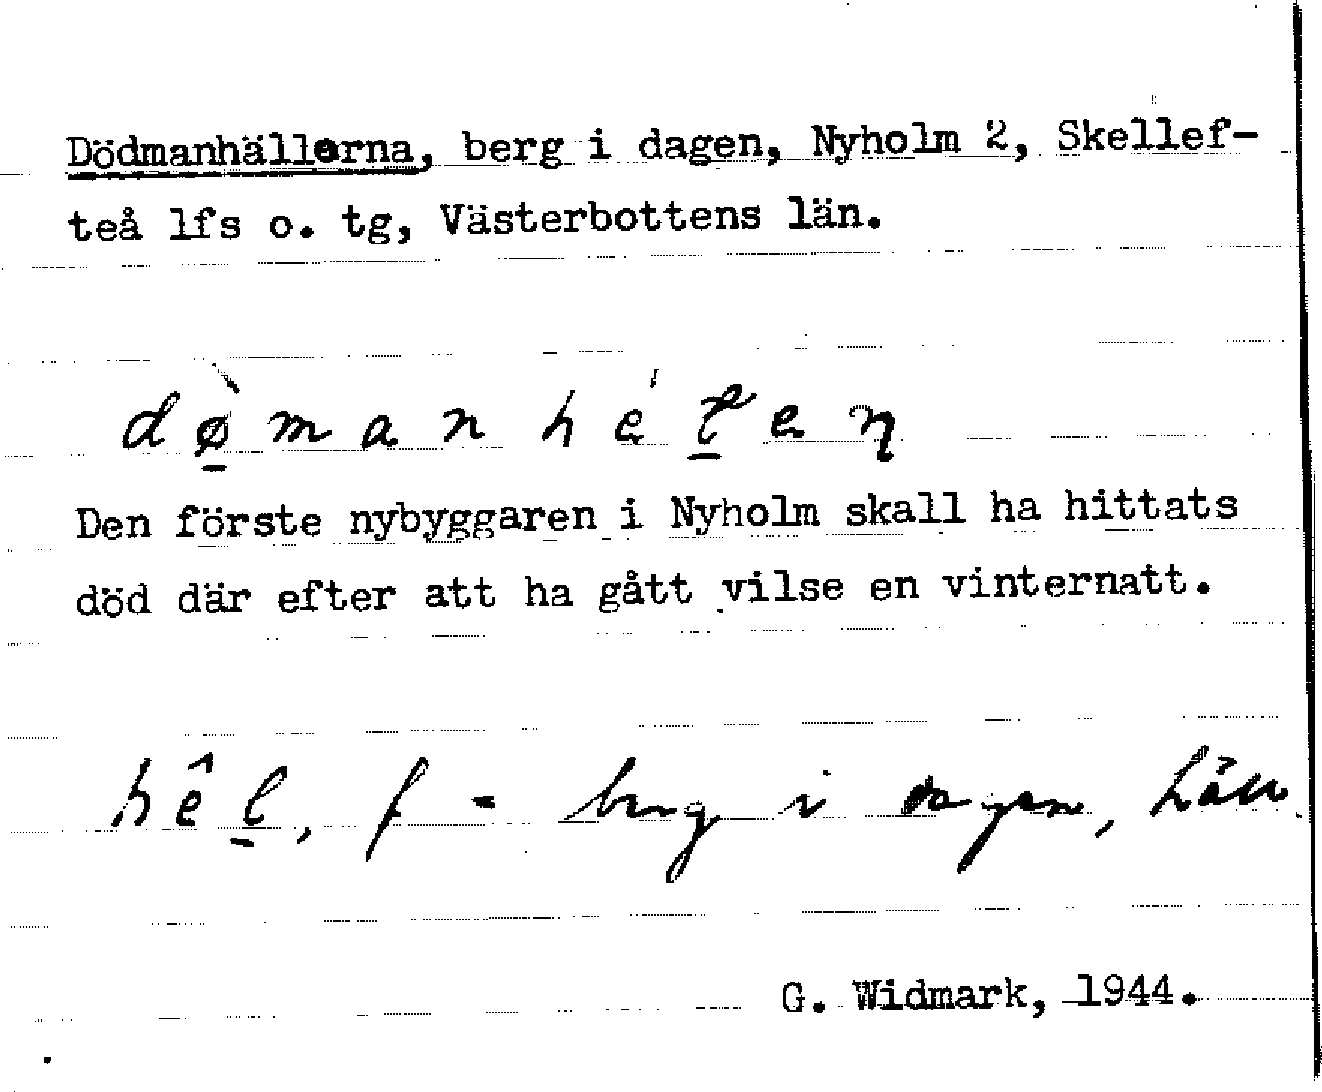 Dödmanhällerna, berg i dagen, Nyholm 2, Skellef-
teå lfs o. tg, Västerbottens län.
dø̱̀manhélen
Den förste nybyggaren i Nyholm skall ha hittats
död där efter att ha gått vilse en vinternatt.
hêḻ, f = berg i dagen, häll.
G. Widmark, 1944.